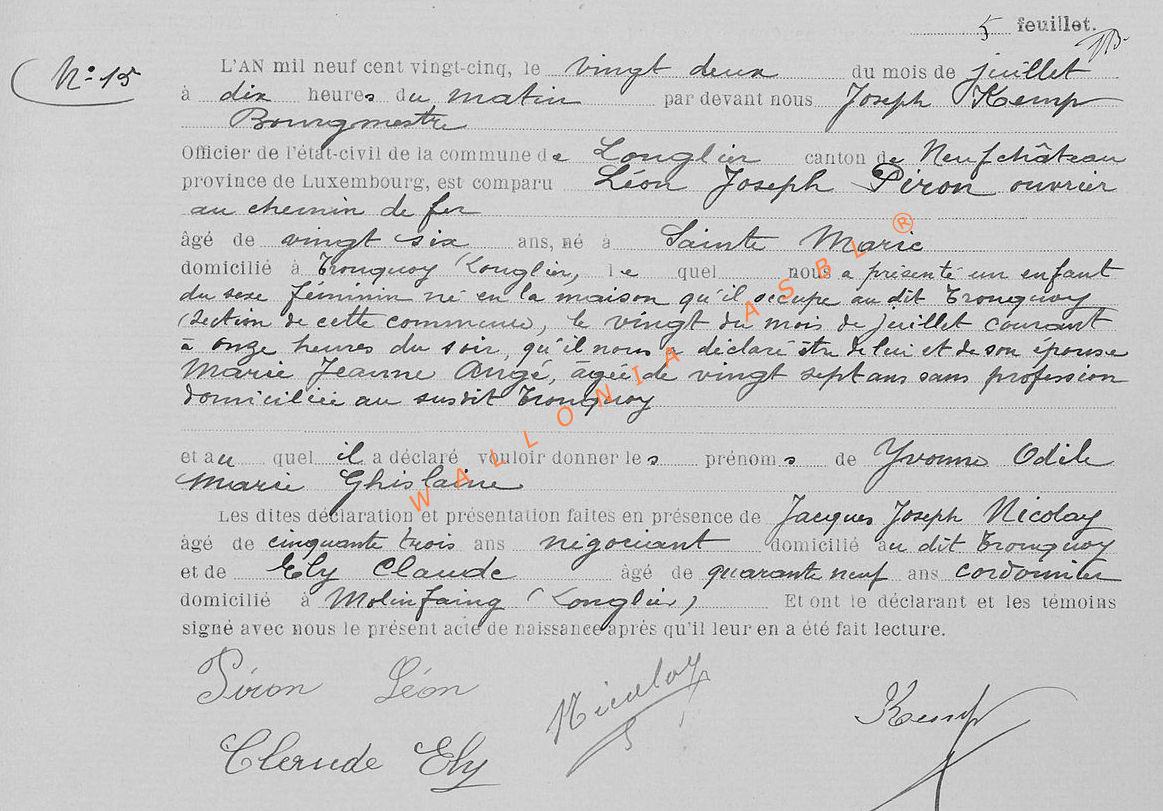 5 feuillet.
N° 15
L'AN mil neuf cent vingt-cinq, le vingt deux du mois de juillet
à dix heures du matin par devant nous Joseph Kemp
Bourgmestre
Officier de l'état-civil de la commune de Longlier canton de Neufchâteau
province de Luxembourg, est comparu Léon Joseph Piron ouvrier
au chemin de fer
âgé de vingt six ans, né à Sainte Marie
domicilié à Tronquoy (Longlier, le quel nous a présenté un enfant
du sexe féminin né en la maison qu'il occupe au dit Tronquoy
(section de cette commune, le vingt du mois de juillet courant
à onze heures du soir, qu'il nous a déclaré être de lui et de son épouse
Marie Jeanne Angé, âgée de vingt sept ans sans profession
domiciliée au susdit Tronquoy
et au quel il a déclaré vouloir donner les prénoms de Yvonne Odile
Marie Ghislaine
Les dites déclaration et présentation faites en présence de Jacques Joseph Nicolay
âgé de cinquante trois ans négociant domicilié au dit Tronquoy
et de Ely Claude âgé de quarante neuf ans cordonnier
domicilié à Molinfaing (Longlier) Et ont le déclarant et les témoins
signé avec nous le présent acte de naissance après qu'il leur en a été fait lecture.
Piron Léon
Nicolay
Kemp
Claude Ely
WALLONIA ASBL ®